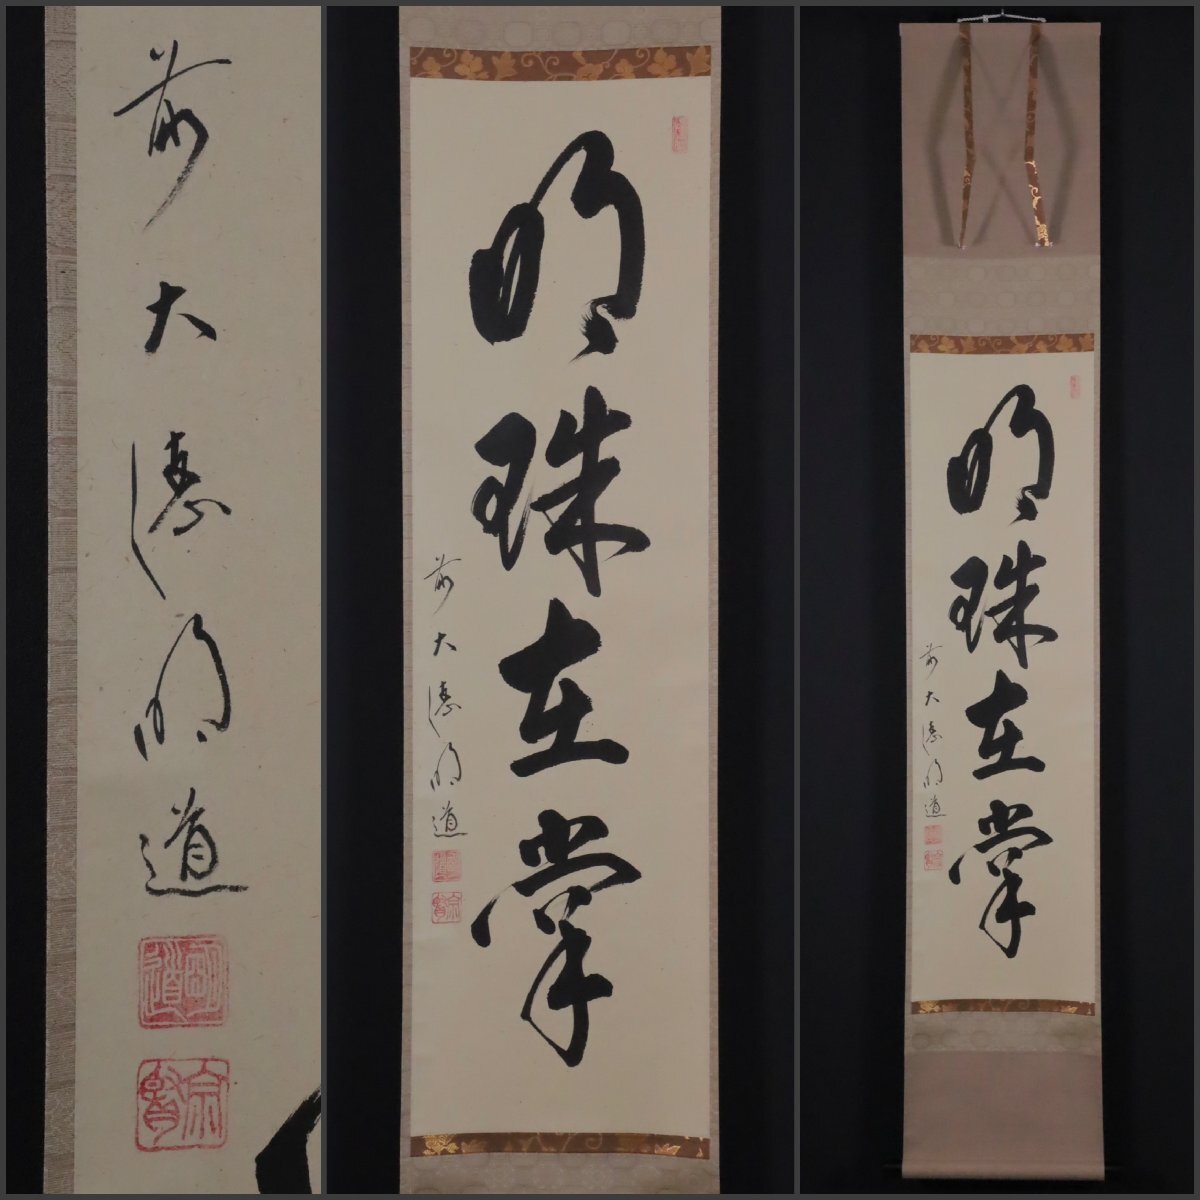 前大徳明道
明珠在掌
前大徳明道
明珠在掌
前大徳明道